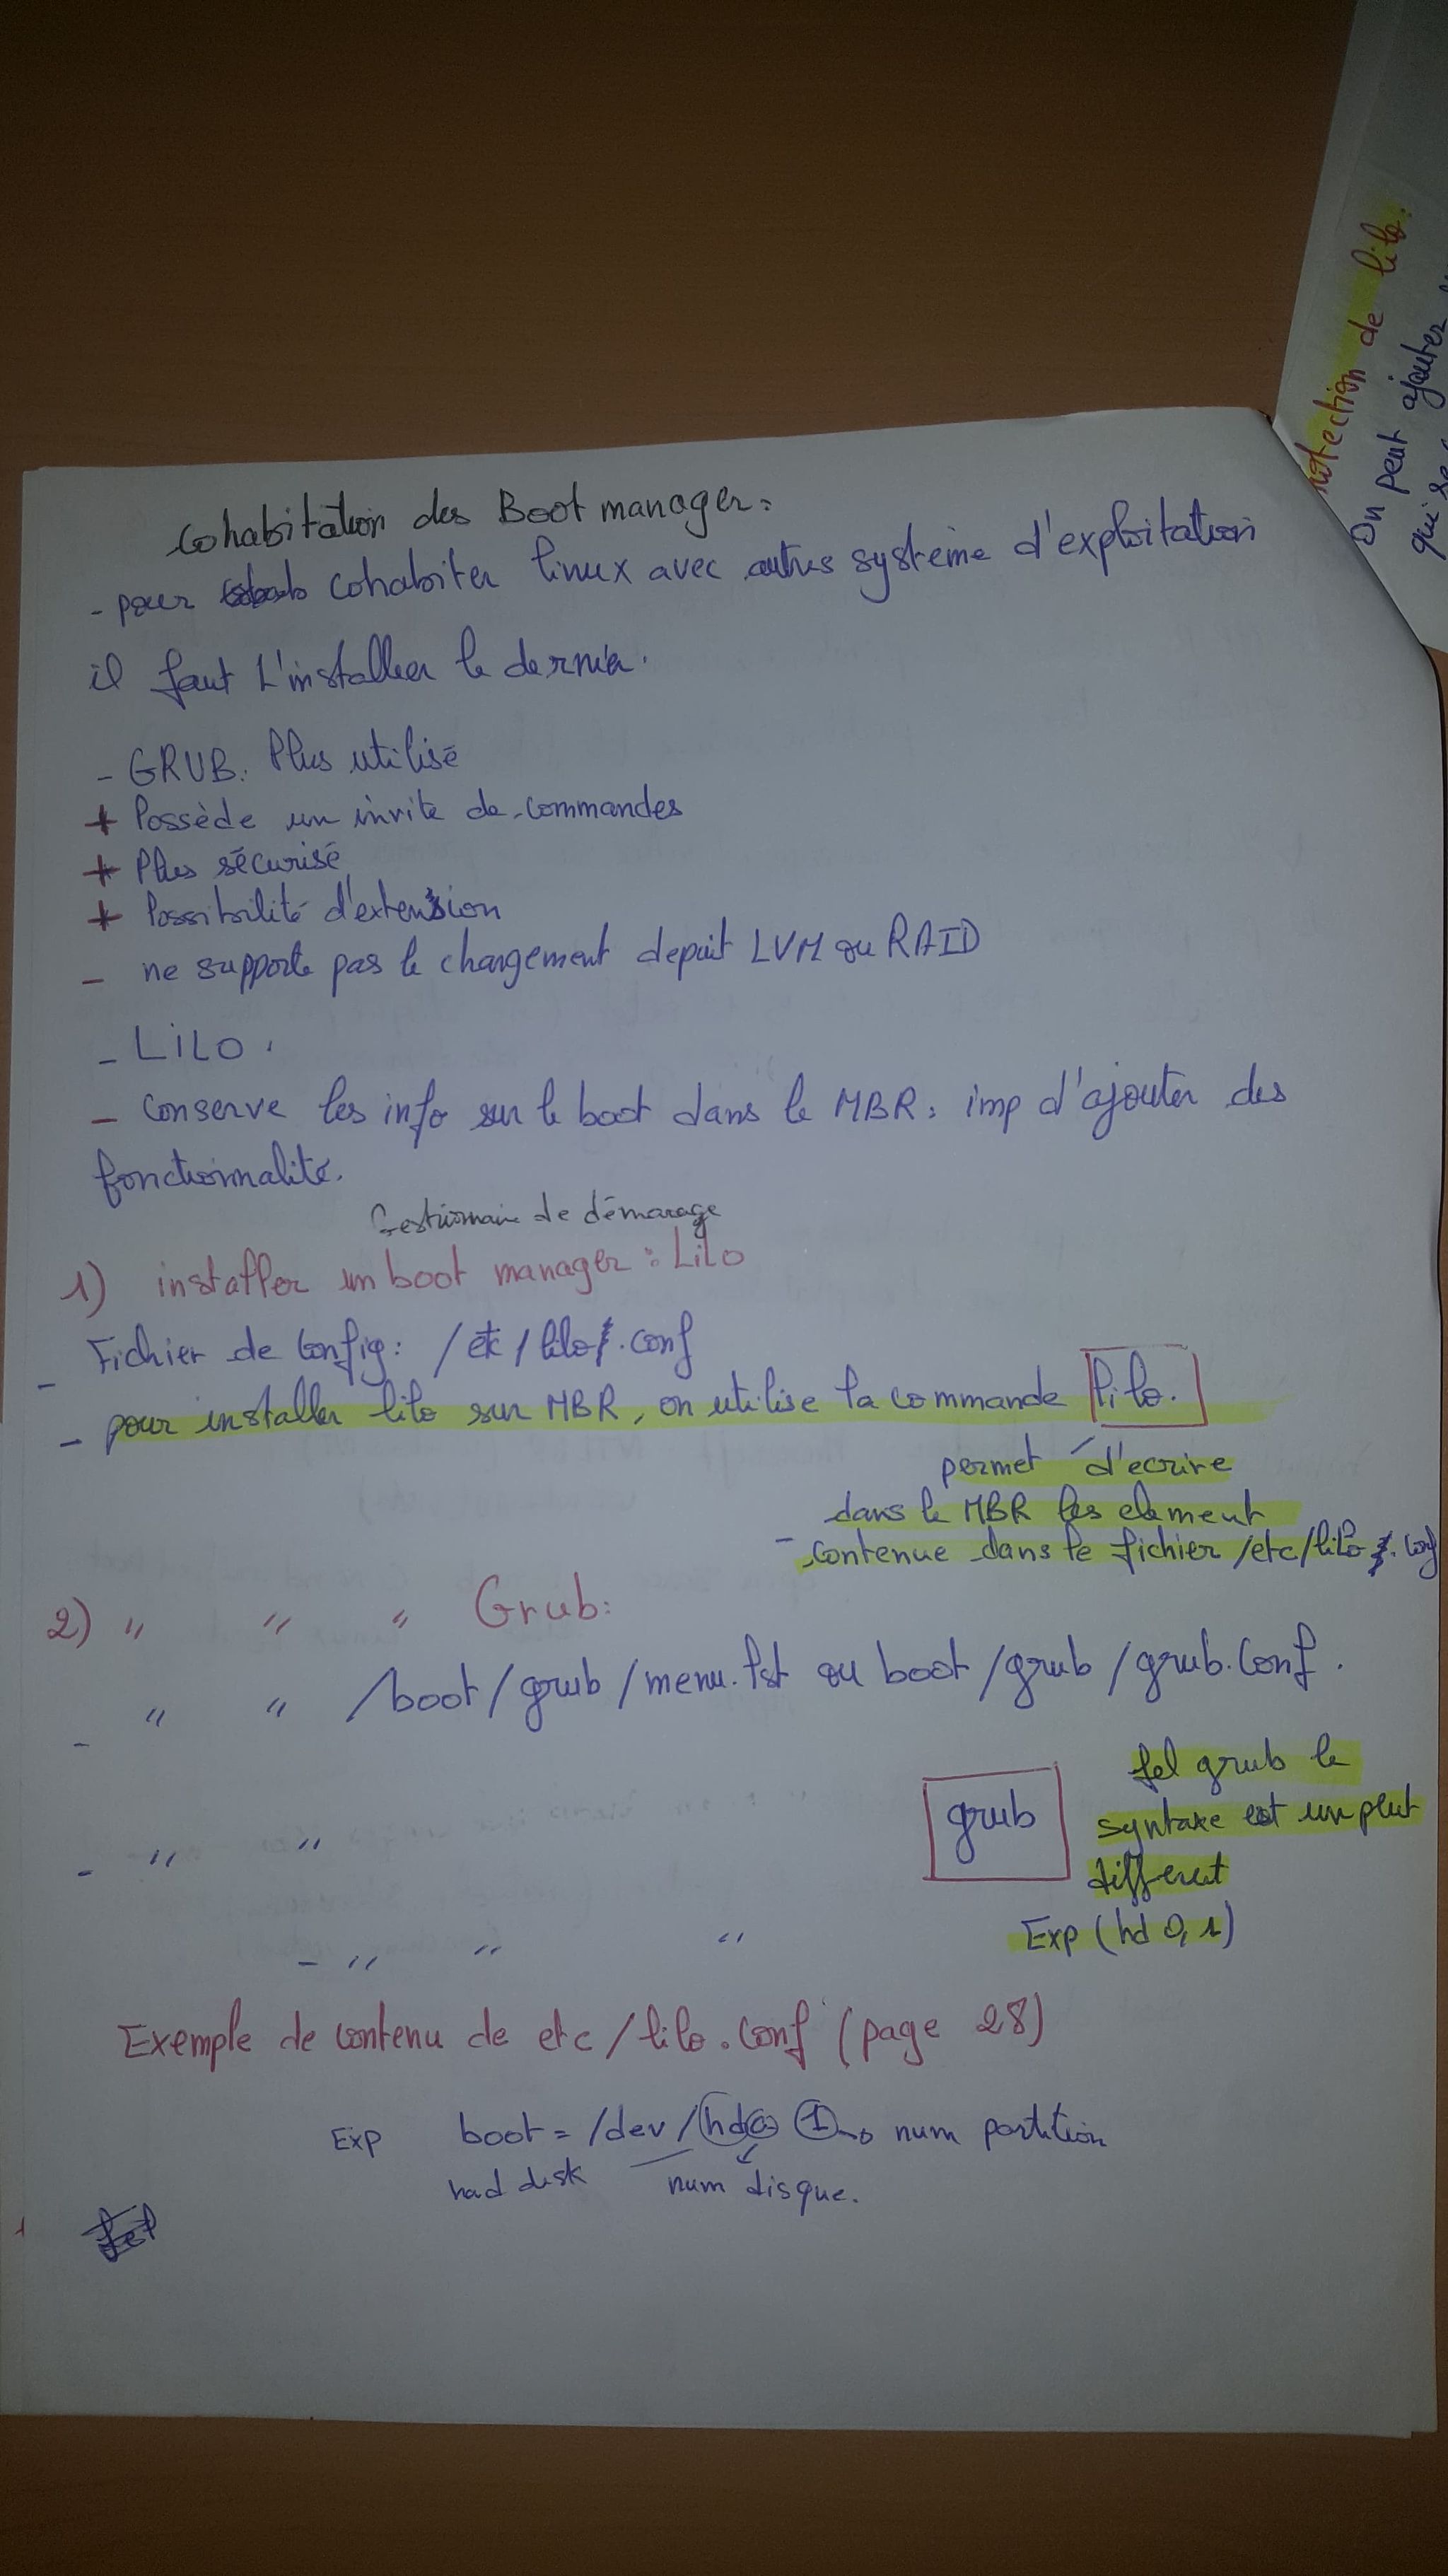 Cohabitation des Boot manager:
- pour cohabiter linux avec autres système d'exploitation
il faut L'installer le dernier.
- GRUB. Plus utilisé
+ Possède un invite de commandes
+ Plus sécurisé
+ Possibilité d'extension
- ne supporte pas le chargement depuit LVM ou RAID
- LiLO.
- Conserve les info sur le boot dans le MBR: imp d'ajouter des
fonctionnalité.
Gestionnaire de démarage
1) installer un boot manager: Lilo
- Fichier de Config: /etc/lilo.conf
- pour installer lilo sur MBR, on utilise la commande lilo.
permet d'ecrire
dans le MBR les element
- contenue dans le fichier /etc/lilo.conf
2) " " " Grub:
- " " /boot/grub/menu.lst ou boot/grub/grub.conf.
fel grub le
- " " grub syntaxe est un peut
different
- " " " Exp (hd 0,1)
Exemple de contenu de etc/lilo.conf (page 28)
Exp boot = /dev/hda 1 → num partition
had disk num disque.
otection de lilo:
On peut ajouter
qui se